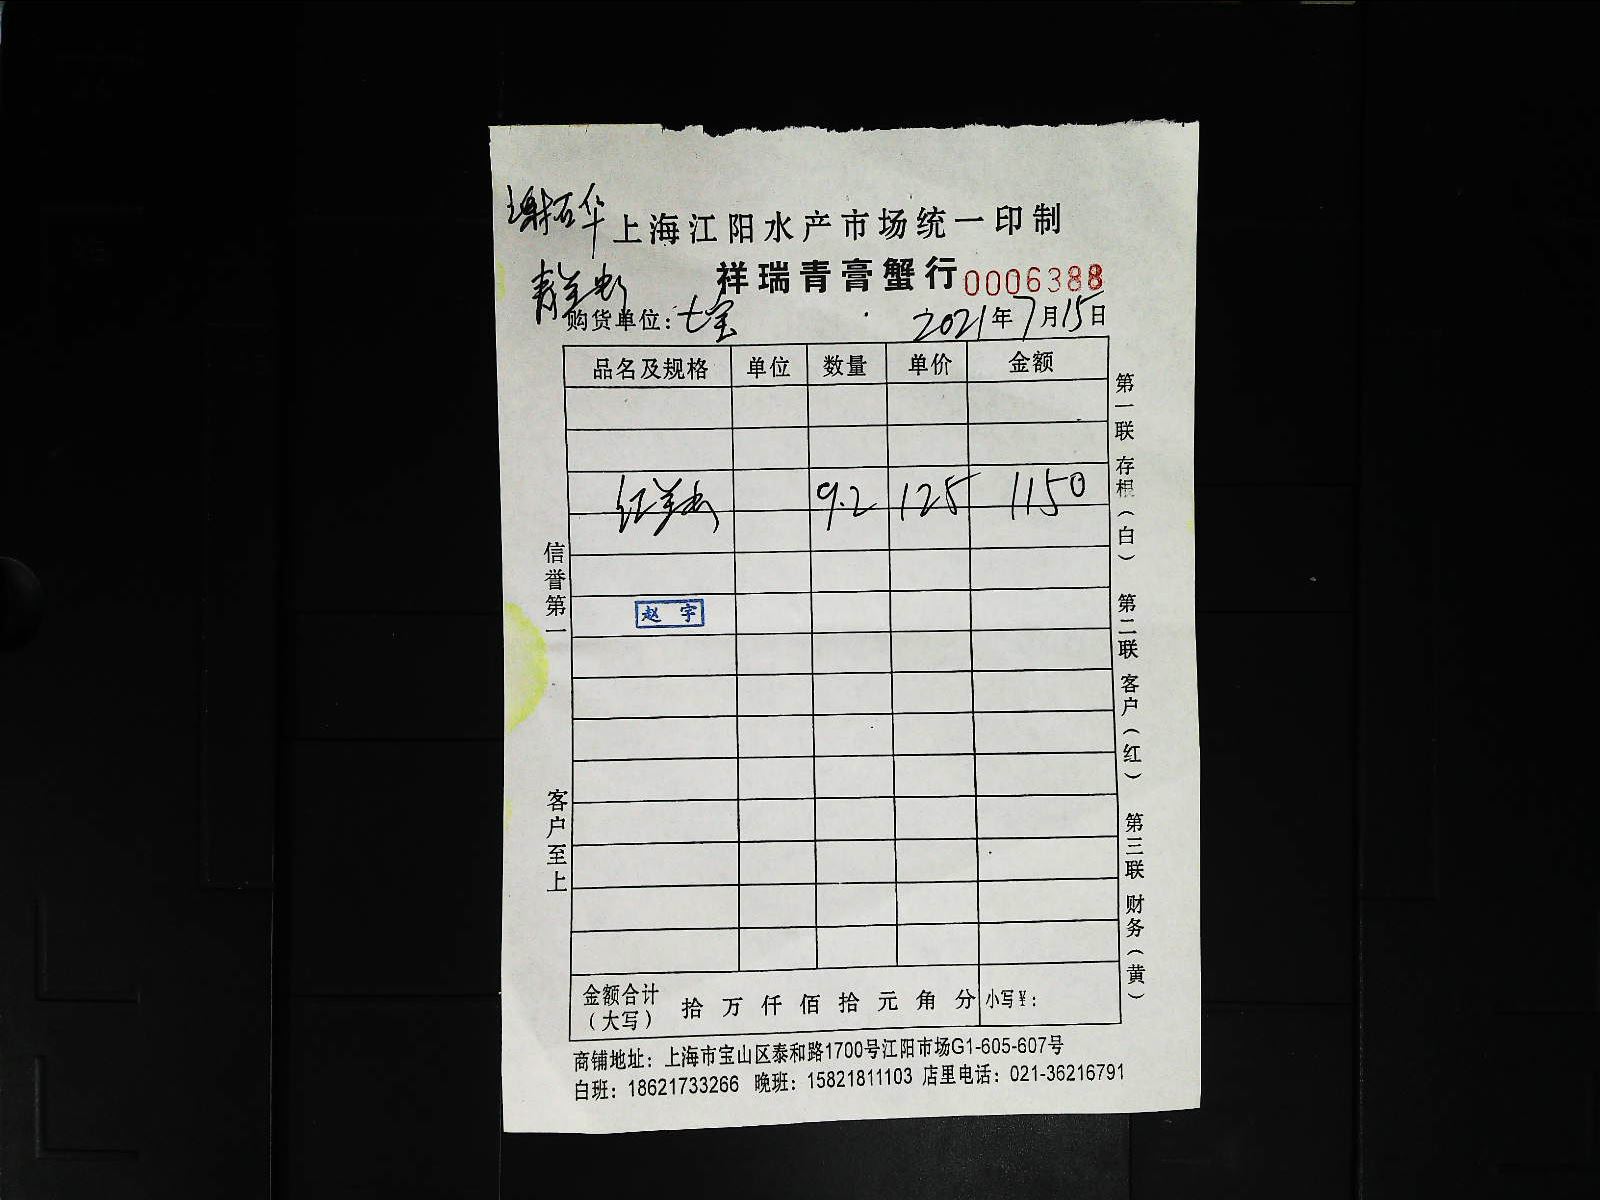 谢石华
上海江阳水产市场统一印制
祥瑞青膏蟹行 0006388
购货单位：七宝 2021年7月15日
品名及规格 单位 数量 单价 金额
红羔 9.2 125 1150
赵宇
信誉第一
客户至上
第一联 存根（白） 第二联 客户（红） 第三联 财务（黄）
金额合计（大写） 拾 万 仟 佰 拾 元 角 分 小写¥：
商铺地址：上海市宝山区泰和路1700号江阳市场G1-605-607号
白班：18621733266 晚班：15821811103 店里电话：021-36216791